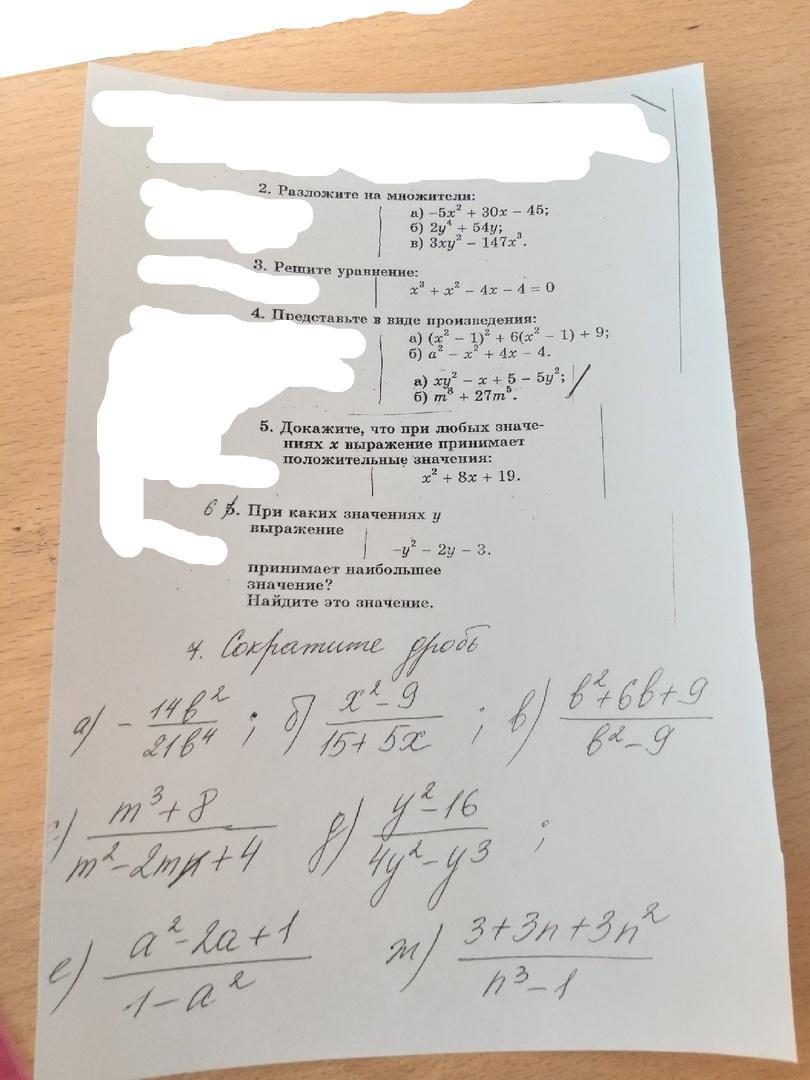 2. Разложите на множители:
а) –5x² + 30x – 45;
б) 2y⁴ + 54y;
в) 3xy² – 147x³.
3. Решите уравнение:
x³ + x² – 4x – 4 = 0
4. Представьте в виде произведения:
а) (x² – 1)² + 6(x² – 1) + 9;
б) a² – x² + 4x – 4.
а) xy² – x + 5 – 5y²;
б) m⁸ + 27m⁵.
5. Докажите, что при любых значе-
ниях x выражение принимает
положительные значения:
x² + 8x + 19.
6 5. При каких значениях y
выражение
–y² – 2y – 3.
принимает наибольшее
значение?
Найдите это значение.
7. Сократите дробь
а) - 14b²/21b⁴ ; б) x²-9/15+5x ; в) b²+6b+9/b²-9
m³+8/m²-2m+4 д) y²-16/4y²-y3 ;
е) a²-2a+1/1-a² ж) 3+3n+3n²/n³-1